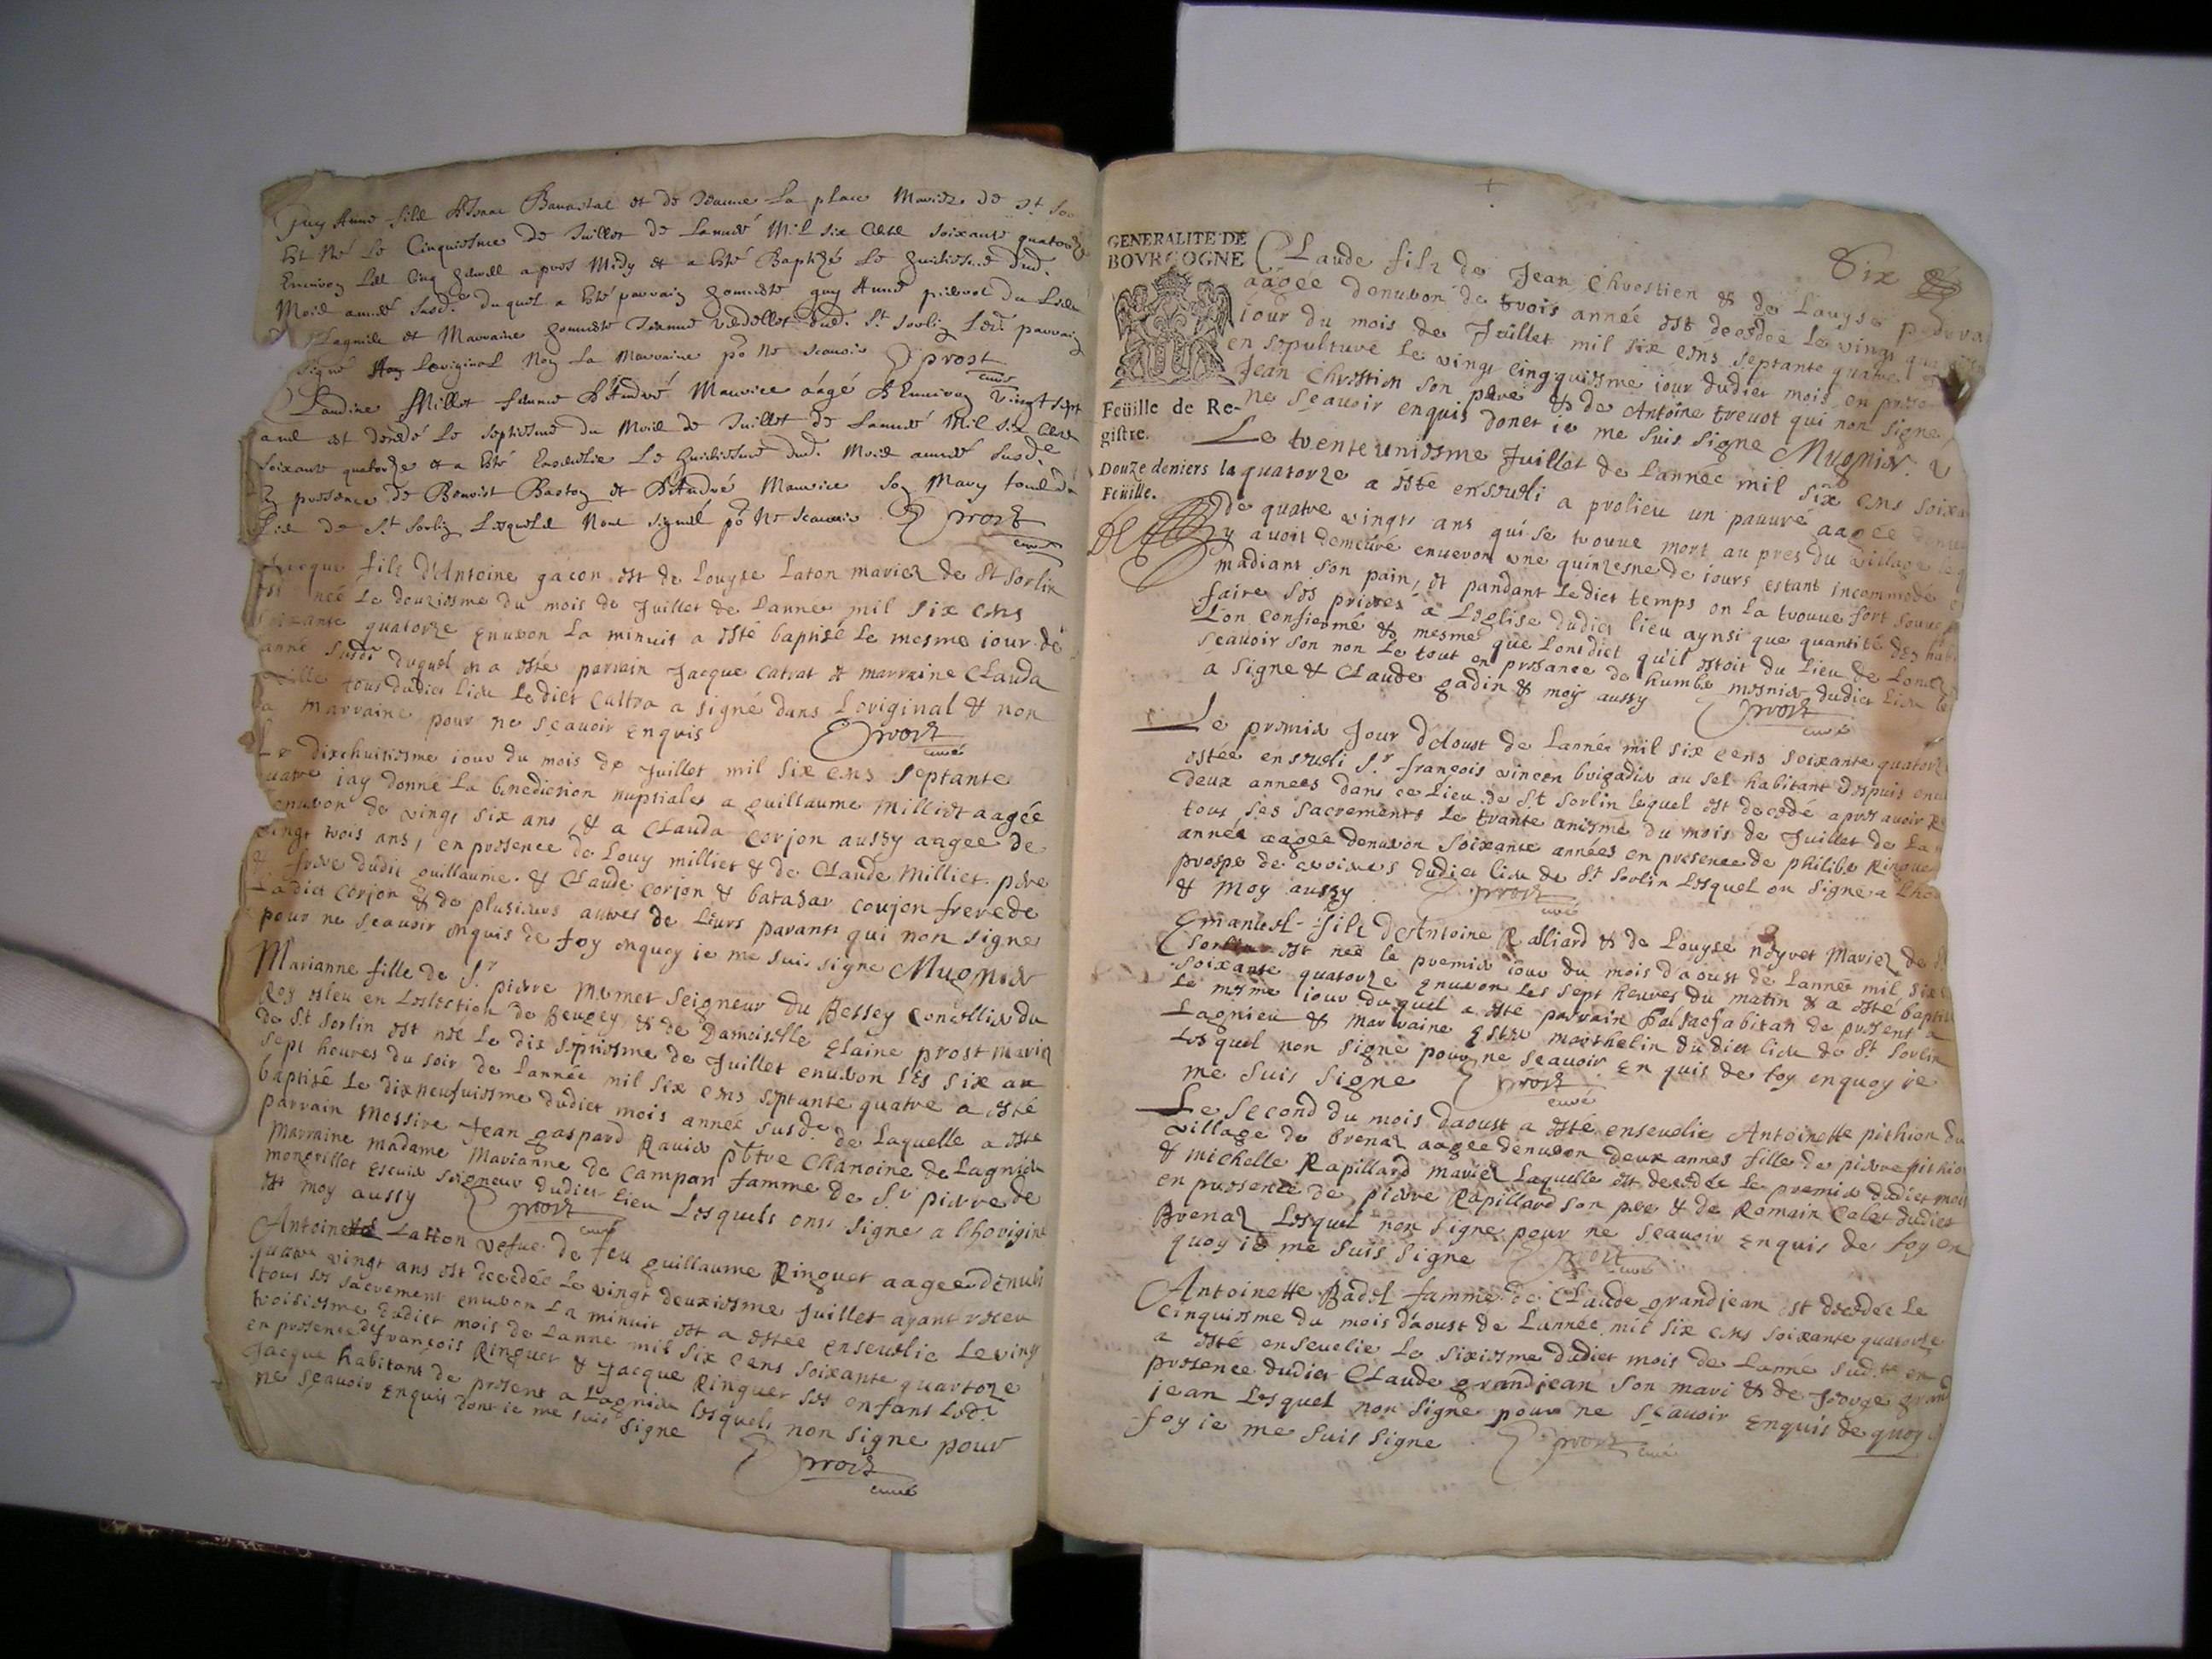 Guy Anne fils d'Isaac et de Jeanne La place Mariez de St
Est Né Le Cinquiesme de Juillet de Lannee Mil six Cens soixante quatorze
Environ Les Cinq heures apres Midy et a esté Baptizé Le huitiesme dud.
Mois année susd. duquel a esté parrain honneste guy Anne
et Marraine honneste Jeanne dud. St Sorlin Led. parrain
signé Loriginal Non La Marraine po ne scavoir prost
curé
Millet femme d'André Maurice aagé d'Environ Vingt sept
ans est decedé Le septiesme du Mois de Juillet de Lannee Mil six Cens
soixante quatorze et a esté Ensevelie Le huitiesme dud. Mois année susd.e
En presence de Benoist et d'André Maurice son Mary tous du
Lieu de St Sorlin Lesquels Nont signé po ne scavoir prost
curé
Jacque fils d'Antoine gacon est de Louyse Laton mariez de St Sorlin
est neé Le douziesme du mois de Juillet de Lannee mil six cens
soixante quatorze Environ La minuit a esté baptisé Le mesme iour de
anné susd. duquel en a esté parrain Jacque Catrat et marraine CLauda
tous dudict lieu Ledict Cattra a signé dans Loriginal & non
la marraine pour ne sçauoir enquis prost
curé
Le dixhuitiesme iour du mois de Juillet mil six cens septante
quatre iay donné La benediction nuptiales a guillaume Milliet aagée
enuiron de vingt six ans, & a CLauda Corjon aussy aagee de
vingt trois ans, en presence de Louy milliet & de CLaude Milliet pere
& frere dudit guillaume. & CLaude Corjon & batazar coujon frere de
Ladict Corjon & de plusieurs autres de Leurs parants qui non signe
pour ne sçauoir enquis de foy enquoy ie me suis signe Mugnier
Marianne fille de Sr. pierre Momet Seigneur du Bessey Conseillier du
Roy esleu en Leslection de Beugey & de Damoiselle Elaine prost mariez
de St Sorlin est née Le dix septiesme de Juillet enuiron Les six au
sept heures du soir de Lannée mil six cens septante quatre a esté
baptisé Le dixneufuiesme dudict mois année susd.e de Laquelle a esté
parrain Messire Jean gaspard Rauier pbtre Chanoine de Lagnieu
marraine madame Marianne de Campan famme de Sr pierre de
mongrillet Escuier Seigneur dudict lieu Lesquels ont signe a lhorigine
et moy aussy prost
curé
Antoinette Latton vefue de feu guillaume Ringuet aagee denuiron
quatre vingt ans est decedée Le vingt deuxiesme Juillet ayant receu
tous ses sacrement enuiron La minuit est a estée enseuelie Le vingt
troisiesme dudict mois de Lanne mil six cens soixante quartorze
en presence de françois Ringuet & Jacque Ringuet ses enfans Led.
Jacque habitant de present a Lagnieu Lesquels non signe pour
ne sçauoir Enquis dont ie me suis signe
prost
curé
GENERALITE DE
BOVRGOGNE
Six
Feüille de Re-
gistre.
Douze deniers la
Feüille.
CLaude fils de Jean Chrestien & de Louyse
aagée denuiron de trois année est decedée Le vingt
iour du mois de Juillet mil six cens septante quatre
en sepulture Le vingt cinqquiesme iour dudict mois en
Jean Chrestien son pere & de Antoine treuot qui non signe
ne sçauoir enquis donct ie me suis signe Mugnier
Le trente uniesme Juillet de Lannée mil six cens
quatorze a esté enseueli a prolieu un pauuré aagee
de quatre vingts ans qui se trouue mort au pres du village
y auoit demeuré enuiron une quinzesne de iours estant incommodé
madiant son pain, et pandant Ledict temps on La trouue fort
faire ses prieres a Leglise dudict lieu aynsi que quantité des
Lon confiermé & mesme que Lonsdict qu'il estoit du Lieu de
sçauoir son non Le tout en presance de humbe dudict Lieu
a signe & CLaude gadin & moy aussy prost
curé
Le premier Jour d'Aoust de Lannée mil six cens soixante quatorze
estée enseueli Sr. françois vincen brigadier au sel habitant depuis
deux annees dans ce Lieu de St Sorlin lequel est decedé apres auoir
tous ses sacrements Le trante uniesme du mois de Juillet de La
année aagée denuiron soixante années en presence de philibe Ringuet
prospe de dudict lieu de St Sorlin Lesquel on signe a
& moy aussy prost
curé
Emanuel fils d'Antoine Ralliard & de Louyse Mariez de
Sorlin est neé le premier iour du mois d'aoust de Lannée mil six
soixante quatorze enuiron Les sept heures du matin & a esté
Le mesme iour duquel a esté parrain habitan de present a
Lagnieu & marraine dudict lieu de St Sorlin
Lesquel non signe pour ne sçauoir Enquis de foy enquoy ie
me suis signe prost
curé
Le second du mois daoust a esté enseuelie Antoinette pithion du
village de brenaz aagée denuiron deux annes fille de pierre
& michelle Rapillard mariez Laquelle est decedée Le premier dudict mois
en presence de pierre Rapillard son pere & de Romain Calet dudict
Brenaz Lesquel non signe pour ne sçauoir Enquis de foy en
quoy ie me suis signe prost
curé
Antoinette Badel famme de CLaude grandjean est decedee Le
Cinquiesme du mois d'aoust de Lannée mil six cens soixante quatorze
a esté enseuelie Le sixiesme dudict mois de Lanné sud.te en
presence dudict CLaude grandjean son mari & de
jean Lesquel non signe pour ne sçauoir Enquis de quoy
foy ie me suis signe prost
curé